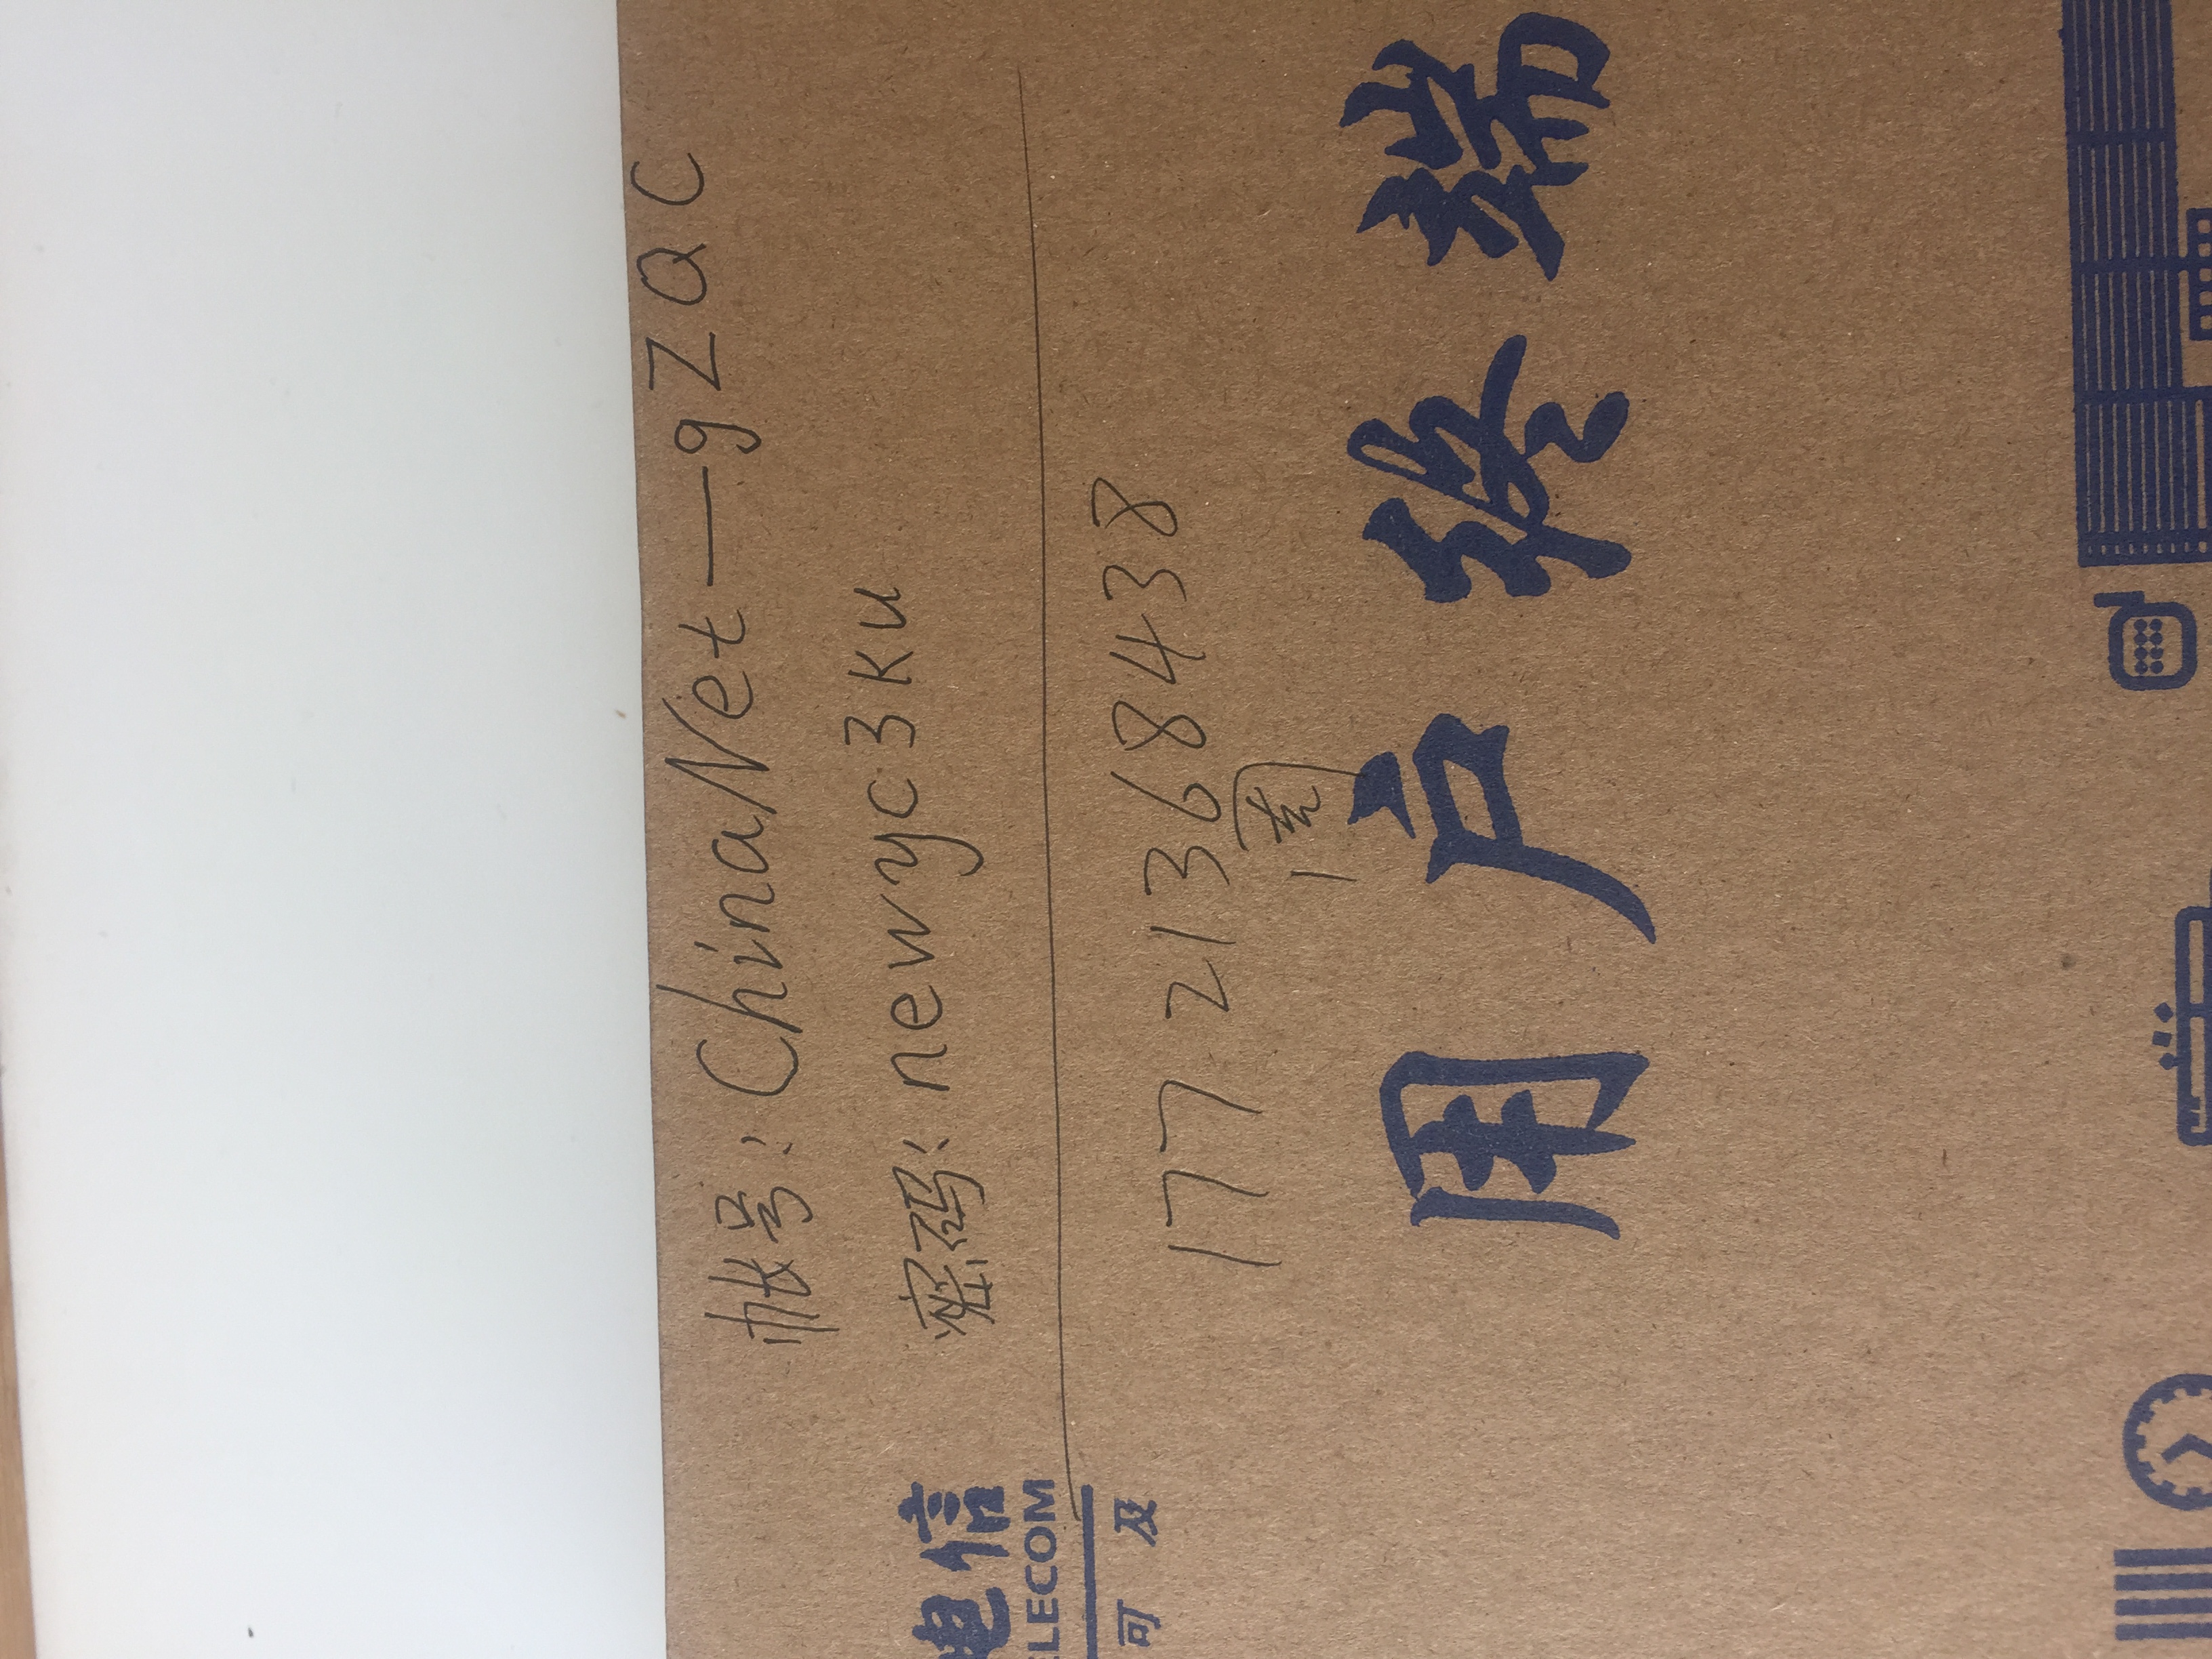 帐号：ChinaNet—gZQC
密码：newyc3ku
电信
ELECOM
可及
17721368438
周
用户终端